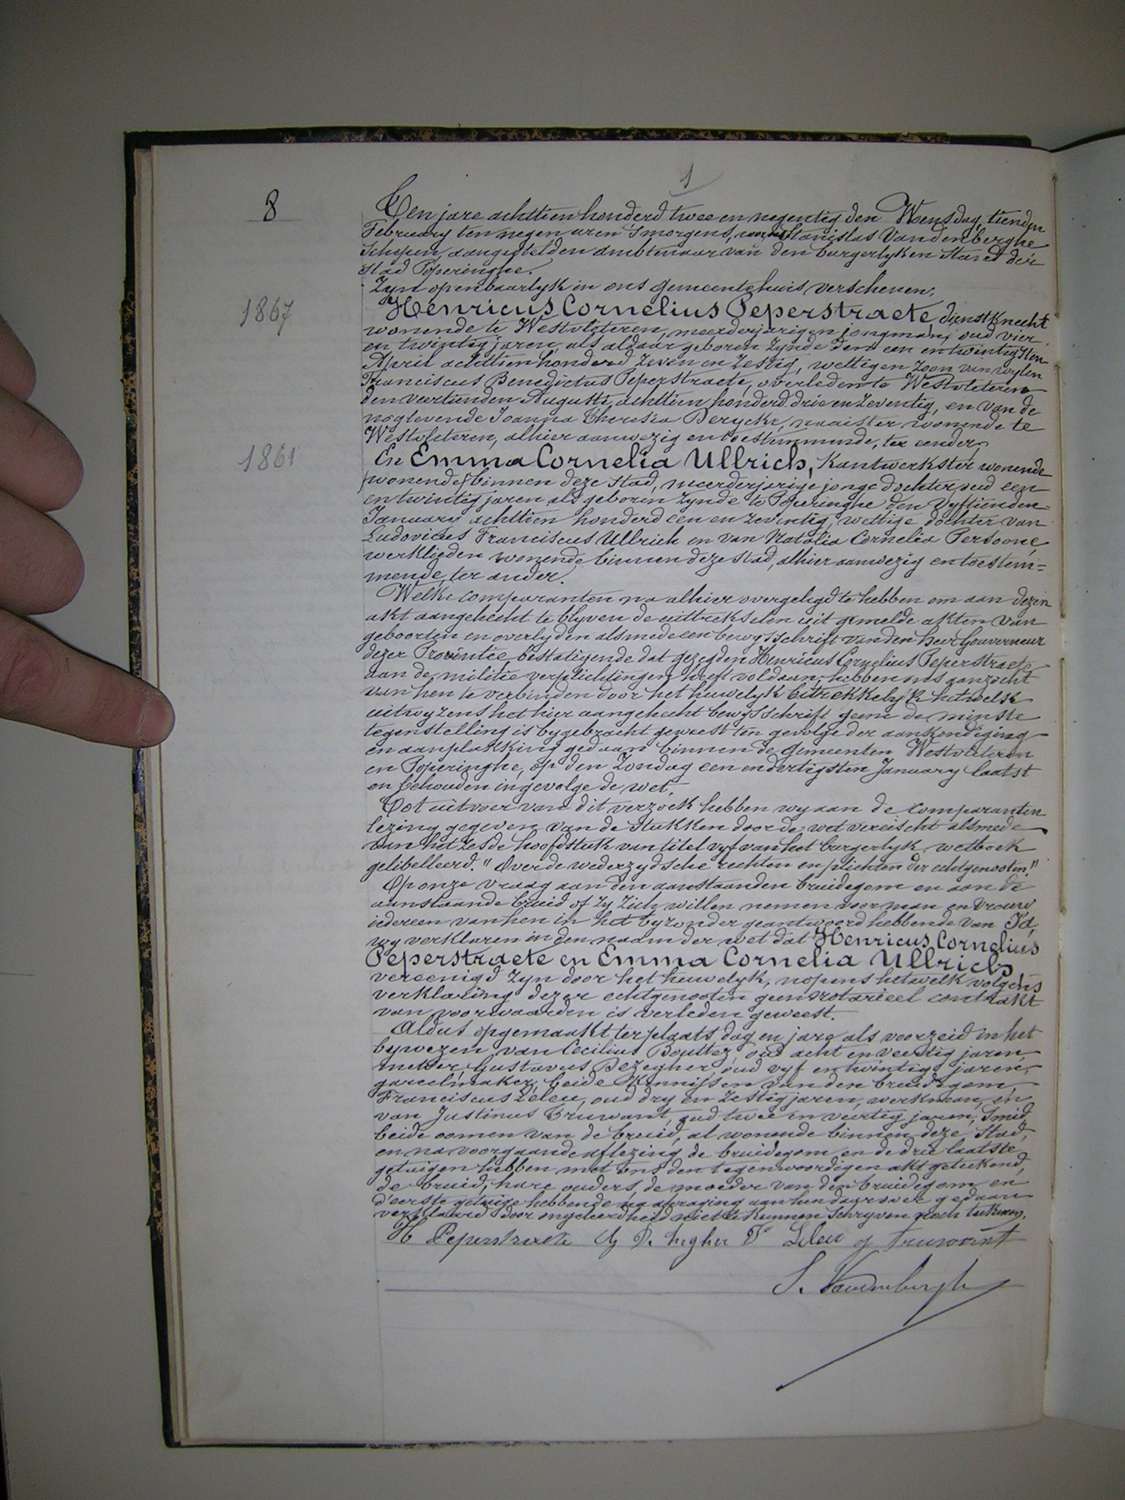 1
8
Een jare achttien honderd twee en negentig den Wensdag tienden
February ten negen uren s'morgens, Stanislas Vandenberghe
Schepen, aangestelden ambtenaar van den burgerlyken Stand der
stad Poperinghe.
Zyn openbaarlyk in ons gemeentehuis verschenen.
1867
Henricus Cornelius Peperstraete, dienstknecht
wonende te Westvleteren, meerderjarigen jongman, oud vier
en twintig jaren als aldaar geboren zynde den een en twintigsten
April achttien honderd zeven en zestig, wettigen zoon van wylen
Franciscus Benedictus Peperstraete, overleden te Westvleteren
den veertienden Augusti, achttien honderd drie en zeventig, en van de
noglevende Joanna Theresia Derycke, naaister wonende te
Westvleteren, alhier aanwezig en toestemmende, ter eender
1861
En Emma Cornelia Ullrich, Kantwerkster wonende
wonende binnen deze stad, meerderjarige jonge dochter, oud een
en twintig jaren als geboren zynde te Poperinghe den vyftienden
January achttien honderd een en zeventig, wettige dochter van
Ludovicus Franciscus Ullrich en van Natalia Cornelia Persoone
werklieden wonende binnen deze stad, alhier aanwezig en toestem=
mende, ter ander.
Welke comparanten na alhier overgelegd te hebben om aan dezen
akt aangehecht te blyven de uittrekselen uit gemelde akten van
geboorten en overlyden alsmede een bewysschrift van den heer Gouverneur
dezer Provintie, bestatigende dat gezegden Henricus Cornelius Peperstraete
aan de militie verplichtingen heeft voldaan, hebben ons verzocht
van hen te verbinden door het huwelyk betrekkelyk hetwelk
uitwyzens het hier aangehecht bewysschrift geene de minste
tegenstelling is bygebracht geweest ten gevolge der aankondiging
en aanplakking gedaan binnen de gemeenten Westvleteren
en Poperinghe, op den Zondag een en dertigsten January laatst
en behouden ingevolge de wet.
Tot uitvoer van dit verzoek hebben wy aan de comparanten
lezing gegeven van de stukken door de wet vereischt alsmede
van het zesde hoofdstuk van titel vyf van het burgerlyk wetboek
gelibelleerd "Over de wederzydsche rechten en plichten der echtgenooten."
Op onze vraag aan den aanstaanden bruidegom en aan de
aanstaande bruid of zy zich willen nemen voor man en vrouw
iedereen van hen in het byzonder geantwoord hebbende van Ja,
wy verklaren in den naam der wet dat Henricus Cornelius
Peperstraete en Emma Cornelia Ullrich
vereenigd zyn door het huwelyk, nopens hetwelk volgens
verklaring dezer echtgenooten geen notarieel contrakt
van voorwaarden is verleden geweest.
Aldus opgemaakt ter plaats, dag en jare als voorzeid in het
bywezen van Cecilius oud acht en veertig jaren
Gustavus oud vyf en twintig jaren,
gareelmaker, beide kennissen van den bruidegom
Franciscus Leleu, oud dry en zestig jaren, werkman, en
van Justinus Truwant, oud twee en veertig jaren, smid,
beide oomen van de bruid, al wonende binnen deze stad,
en na voorgaande aflezing de bruidegom en de drie laatste
getuigen hebben met ons den tegenwoordigen akt geteekend,
de bruid, hare ouders, de moeder van den bruidegom en
d'eerste getuige hebbende na afvraging aan hun daarover gedaan
verklaard door ongeleerdheid niet te kunnen schryven noch teekenen.
H Peperstraete Leleu J truwant
S. Vandenberghe